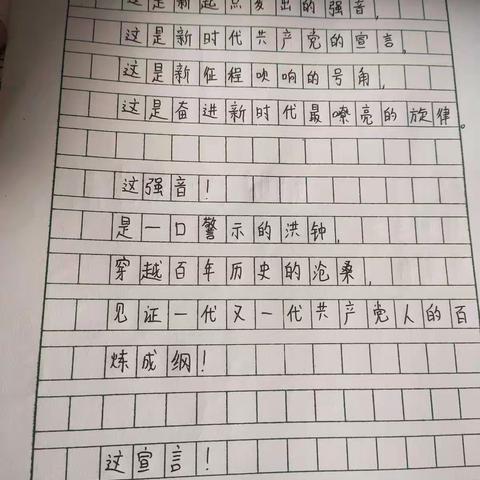 这是新起点发出的强音,
这是新时代共产党的宣言。
这是新征程吹响的号角,
这是奋进新时代最嘹亮的旋律。
这强音!
是一口警示的洪钟,
穿越百年历史的沧桑,
见证一代又一代共产党人的百
炼成纲!
这宣言!